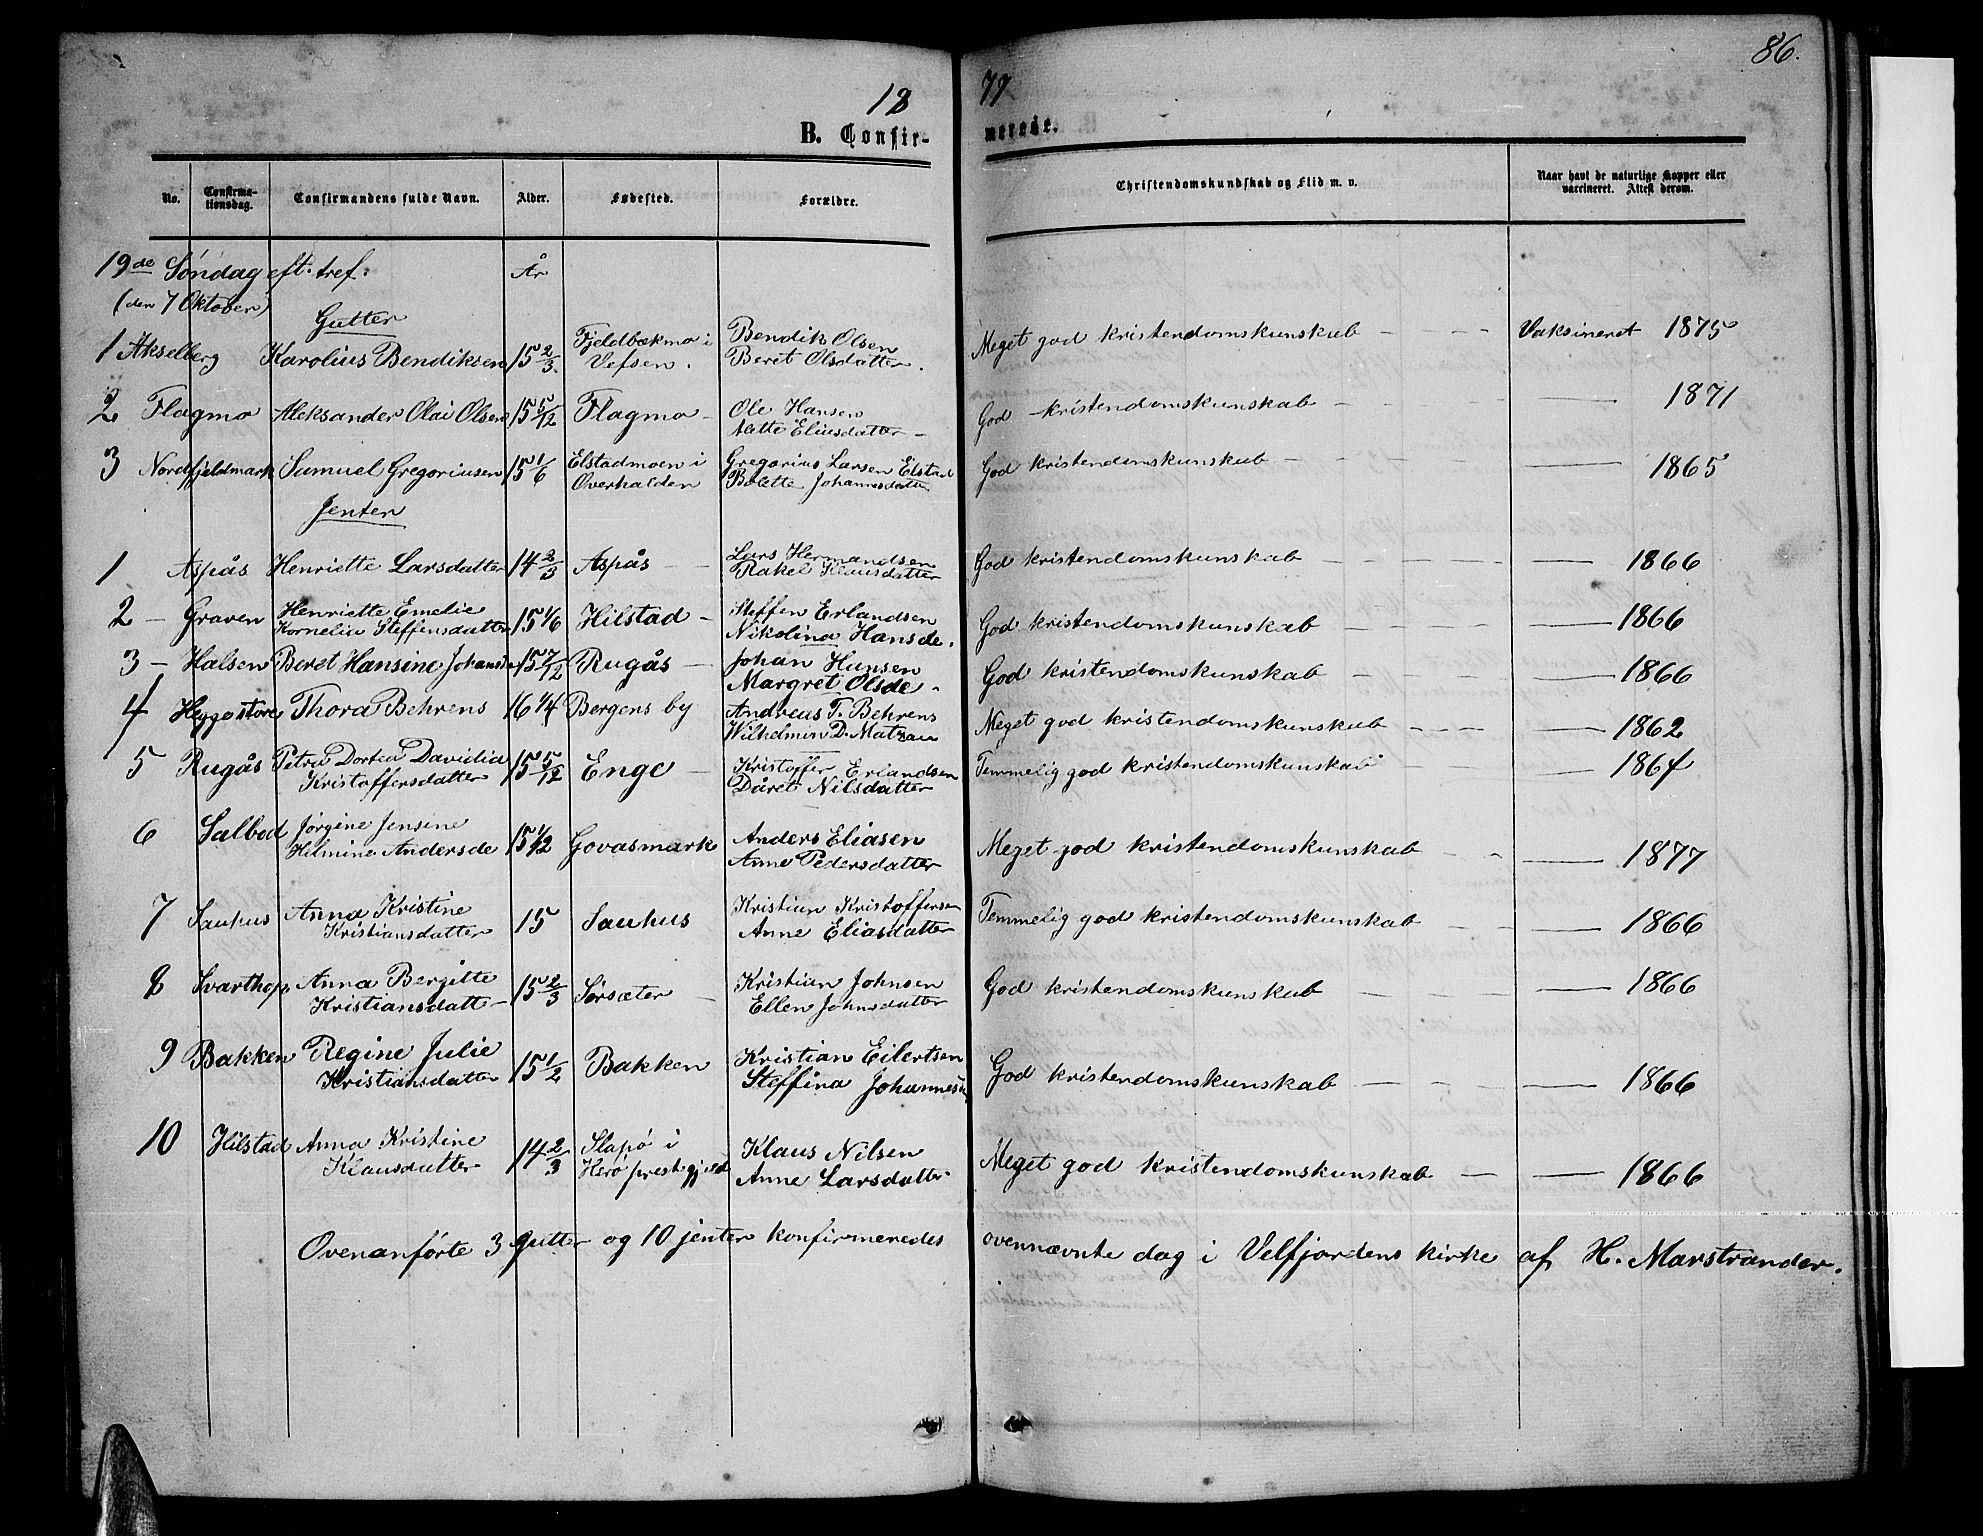 86.
18 77
B. Confirmerede.
No. Confirmationsdag. Confirmandens fulde Navn. Alder. Fødested. Forældre. Christendomskundskab og Flid m. v. Naar havt de naturlige Kopper eller vaccineret. Attest derom.
19de Søndag eft. tref. År
(den 7 Oktober)
Gutter
1 Akselberg Karolius Bendiksen 15 2/3 Fjeldbækmo i Vefsen. Bendik Olsen Beret Olsdatter. Meget god kristendomskunskab - - - Vaksineret 1875
2 Flagmo Aleksander Olai Olsen 15 5/12 Flagmo - Ole Hansen Alette Eliusdatter - God kristendomskunskab - - - — 1871
3 Nordfjeldmark Samuel Gregoriusen 15 1/6 Elstadmoen i Overhalden Gregorius Larsen Elstad Bolette Johannesdatter God kristendomskunskab - - - — 1865
Jenter
1 Aspås Henriette Larsdatter 14 2/3 Aspås - Lars Hermandsen Rakel Klausdatter God kristendomskunskab - - - — 1866
2 - Graven Henriette Emelie Kornelia Steffensdatter 15 1/6 Hilstad - Steffen Erlandsen Nikolina Hansde. God kristendomskunskab - - - — 1866
3 - Halsen Beret Hansine Johansde 15 7/12 Rugås - Johan Hansen Margret Olsde. God kristendomskunskab - - - — 1866
4 Heggestore Thora Behrens 16 1/4 Bergens by Andreas T. Behrens Wilhelmin D. Matzau Meget god kristendomskunskab - - - — 1862
5 Rugås Petra Dortea Davidia Kristoffersdatter 15 5/12 Enge - Kristoffer Erlandsen Dåret Nilsdatter Temmelig god kristendomskunskab - - — 1864
6 Salbod Jørgine Jensine Helmine Andersde 15 1/2 Govasmark Anders Eliasen Anne Pedersdatter Meget god kristendomskunskab - - — 1877
7 Sauhus Anna Kristine Kristiansdatter 15 Sauhus Kristian Kristoffersen Anne Eliasdatter Temmelig god kristendomskunskab - - — 1866
8 Svarthop Anna Bergitte Kristiansdatte- 15 2/3 Sørsæter - Kristian Johnsen Ellen Johnsdatter God kristendomskunskab - - - — 1866
9 Bakken Regine Julie Kristiansdatter 15 1/2 Bakken Kristian Eilertsen Steffina Johannesd. God kristendomskunskab - - - — 1866
10 Hilstad Anna Kristine Klausdatter 14 2/3 Slapø i Herø prestegjeld Klaus Nilsen Anne Larsdatter Meget god kristendomskunskab - — 1866
Ovenanførte 3 gutter og 10 jenter konfirmeredes ovennævnte dag i Velfjordens kirke af H. Marstrander.